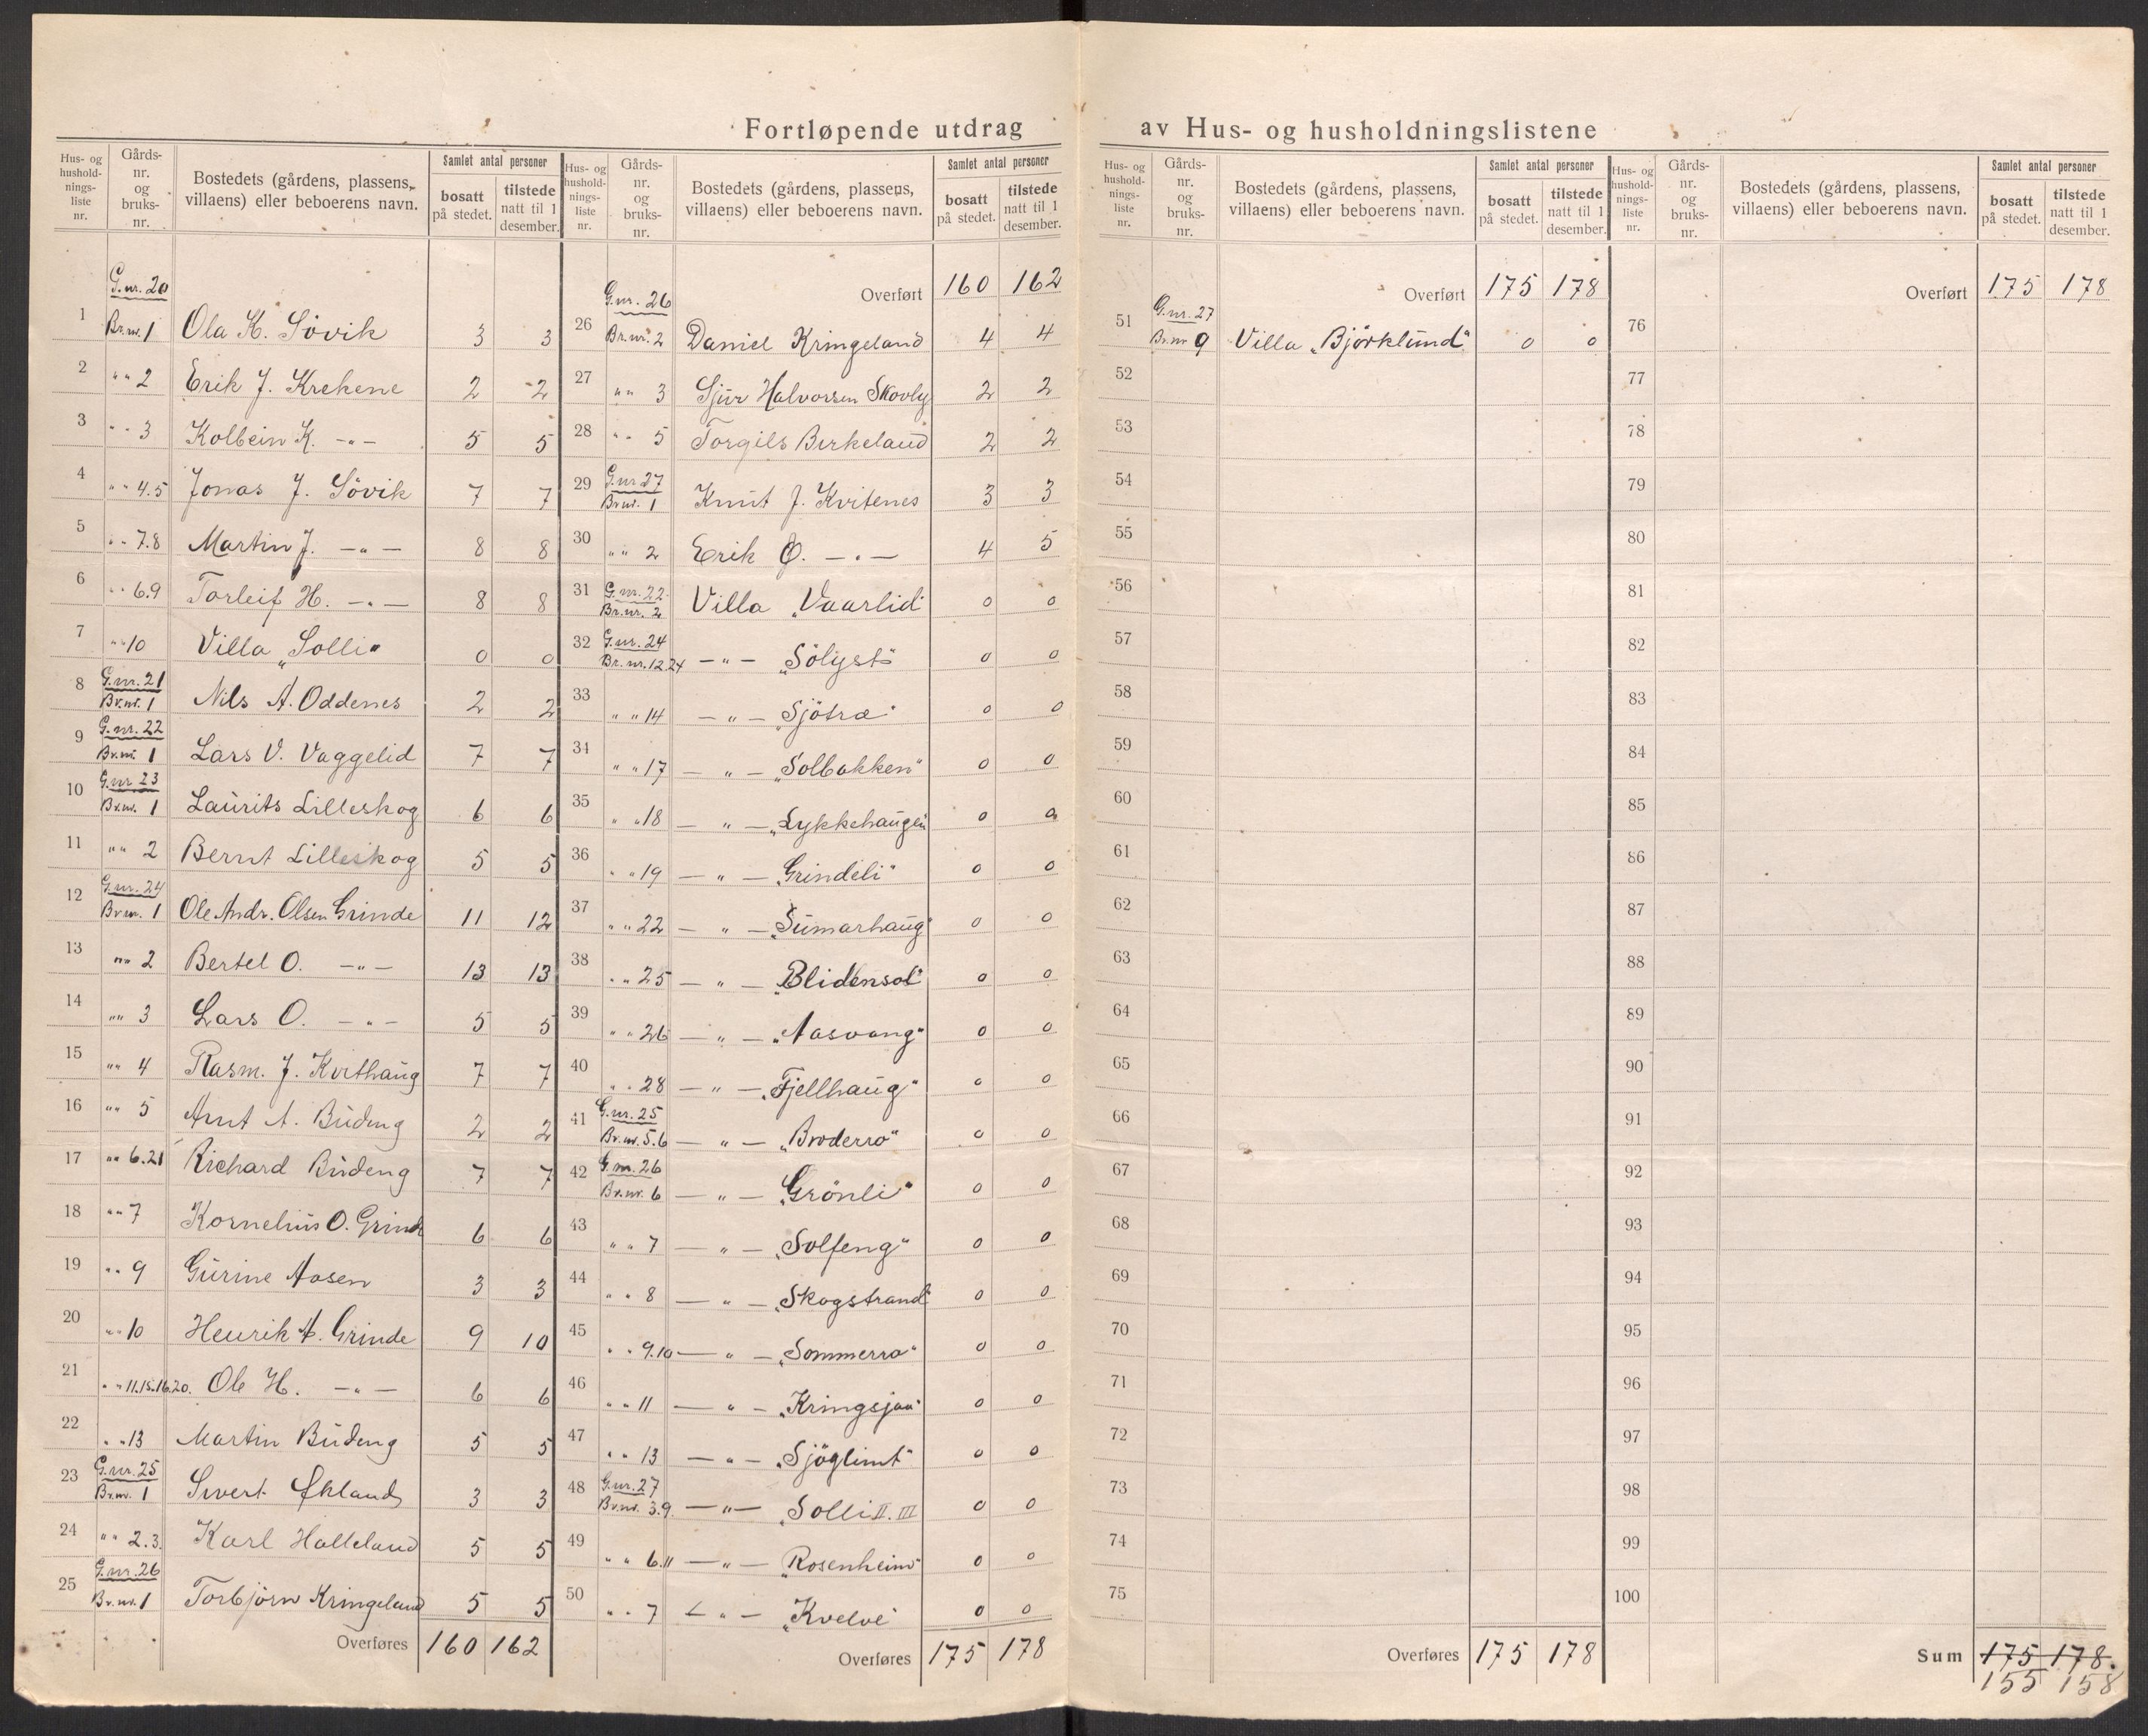 Fortløpende utdrag av Hus- og husholdningslistene
Hus- og hushold- nings- liste nr. | Gårds- nr. og bruks- nr. | Bostedets (gårdens, plassens, villaens) eller beboerens navn. | Samlet antal personer | bosatt på stedet. | tilstede natt til 1 desember.
G.nr. 20
1 Br.nr. 1 Ola K. Sövik 3 3
2 " " 2 Erik J. Krekene 2 2
3 " " 3 Kolbein K. -"- 5 5
4 " " 4.5 Jonas J. Sövik 7 7
5 " " 7.8 Martin J. -"- 8 8
6 " " 6.9 Torleif H. -"- 8 8
7 " " 10 Villa "Solli" 0 0
8 G.nr. 21 Br.nr. 1 Nils A. Oddenes 2 2
9 G.nr. 22 Br.nr. 1 Lars V. Vaggelid 7 7
10 G.nr. 23 Br.nr. 1 Laurits Lilleskog 6 6
11 " " 2 Bernt Lilleskog 5 5
12 G.nr. 24 Br.nr. 1 Ole Andr. Olsen Grinde 11 12
13 " " 2 Bertel O. -"- 13 13
14 " " 3 Lars O. -"- 5 5
15 " " 4 Rasm. J. Kvithaug 7 7
16 " " 5 Arnt A. Budeng 2 2
17 " " 6.21 Richard Budeng 7 7
18 " " 7 Kornelius O. Grinde 6 6
19 " " 9 Gurine Aasen 3 3
20 " " 10 Henrik A. Grinde 9 10
21 " " 11.15.16.20. Ole H. -"- 6 6
22 " " 13 Martin Budeng 5 5
23 G.nr. 25 Br.nr. 1 Sivert Økland 3 3
24 " " 2.3. Karl Halleland 5 5
25 G.nr. 26 Br.nr. 1 Torbjörn Kringeland 5 5
Overføres 160 162
Hus- og hushold- nings- liste nr. | Gårds- nr. og bruks- nr. | Bostedets (gårdens, plassens, villaens) eller beboerens navn. | Samlet antal personer | bosatt på stedet. | tilstede natt til 1 desember.
Overført 160 162
26 G.nr. 26 Br.nr. 2 Daniel Kringeland 4 4
27 " " 3 Sjur Halvorsen Skovly 2 2
28 " " 5 Torgils Birkeland 2 2
29 G.nr 27 Br.nr. 1 Knut J. Kvitenes 3 3
30 " " 2 Erik Ø. -"- 4 5
31 G.nr. 22 Br.nr. 2 Villa "Vaarlid" 0 0
32 G.nr. 24 Br.nr. 12.24 -"- "Sölyst" 0 0
33 " " 14 -"- "Sjötra" 0 0
34 " " 17 -"- "Solbakken" 0 0
35 " " 18 -"- "Lykkehaugen" 0 0
36 " " 19 -"- "Grindeli" 0 0
37 " " 22 -"- "Sumarhaug" 0 0
38 " " 25 -"- "Blidensol" 0 0
39 " " 26 -"- "Aasvang" 0 0
40 " " 28 -"- "Fjellhaug" 0 0
41 G.nr. 25 Br.nr. 5.6 -"- "Broderro" 0 0
42 G.nr. 26 Br.nr. 6 -"- "Grönli" 0 0
43 " " 7 -"- "Solfeng" 0 0
44 " " 8 -"- "Skogstrand" 0 0
45 " " 9.10 -"- "Sommerro" 0 0
46 " " 11 -"- "Kringsjaa" 0 0
47 " " 13 -"- "Sjöglimt" 0 0
48 G.nr. 27 Br.nr. 3.9. -"- "Solli II. III 0 0
49 " " 6.11 -"- "Rosenheim" 0 0
50 " " 7 -"- "Kvelve" 0 0
Overføres 175 178
Hus- og hushold- nings- liste nr. | Gårds- nr. og bruks- nr. | Bostedets (gårdens, plassens, villaens) eller beboerens navn. | Samlet antal personer | bosatt på stedet. | tilstede natt til 1 desember.
Overført 175 178
51 G.nr. 27 Br.nr 9 Villa "Björklund" 0 0
52
53
54
55
56
57
58
59
60
61
62
63
64
65
66
67
68
69
70
71
72
73
74
75
Overføres 175 178
Hus- og hushold- nings- liste nr. | Gårds- nr. og bruks- nr. | Bostedets (gårdens, plassens, villaens) eller beboerens navn. | Samlet antal personer | bosatt på stedet. | tilstede natt til 1 desember.
Overført 175 178
76
77
78
79
80
81
82
83
84
85
86
87
88
89
90
91
92
93
94
95
96
97
98
99
100
Sum 175 178.
155 158